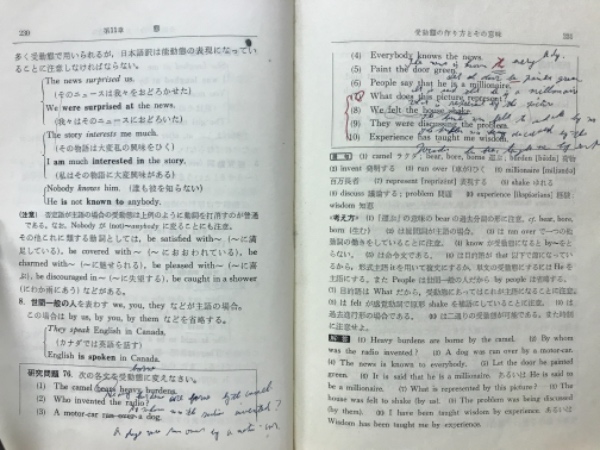 220 第11章 態
多く受動態で用いられるが，日本語訳は能動態の表現になってい
ることに注意しなければならない。
The news surprised us.
(そのニュースは我々をおどろかせた)
We were surprised at the news.
(我々はそのニュースにおどろいた)
The story interests me much.
(その物語は大変私の興味をひく)
I am much interested in the story.
(私はその物語に大変興味がある)
Nobody knows him. (誰も彼を知らない)
He is not known to anybody.
(注意) 否定語が主語の場合の受動態は上例のように動詞を打消すのが普通
である。なお，Nobody が (not)~anybody に変ることにも注意。
その他これに類する動詞としては，be satisfied with~ (~に満
足している), be covered with~ (~におおわれている), be
charmed with~ (~に魅せられる), be pleased with~ (~に喜
ぶ), be discouraged in~ (~に失望する), be caught in a shower
(にわか雨にあう) などがある。
8. 世間一般の人を表わす we, you, they などが主語の場合。
この場合は by us, by you, by them などを省略する。
They speak English in Canada.
(カナダでは英語を話す)
English is spoken in Canada.
研究問題 76. 次の各文を受動態に変えなさい。
(1) The camel bears heavy burdens.
(2) Who invented the radio?
(3) A motor-car ran over a dog.
受動態の作り方とその意味 221
(4) Everybody knows the news.
(5) Paint the door green.
(6) People say that he is a millionaire.
(7) What does this picture represent?
(8) We felt the house shake.
(9) They were discussing the problem.
(10) Experience has taught me wisdom.
(1) camel ラクダ; bear, bore, borne 運ぶ; burden 荷物
(2) invent 発明する (3) run over (車が)ひく (6) millionaire
百万長者 (7) represent 表現する (8) shake ゆれる
(9) discuss 議論する; problem 問題 (10) experience 経験;
wisdom 知恵
<考え方> (1)「運ぶ」の意味の bear の過去分詞の形に注意。cf. bear, bore,
born (生む) (2) は疑問詞が主語の場合。(3) は ran over で一つの他
動詞の働きをしていることに注意。(4) know が受動態になると by~をと
らない。(5) は命令文である。(6) は目的語が that 以下の節になってい
るから，形式主語 it を用いて複文にするか，
主語にする。また People は世間一般の人だから by people は省略する。
(7) 目的語は What だから，受動態にあってはこれが主語になることに注意。
(8) は felt が感覚動詞で原形 shake を補語にしていることに注意。(9) は
過去進行形の場合である。(10) は二通りの受動態が可能である。また時制
に注意せよ。
(1) Heavy burdens are borne by the camel. (2) By whom
was the radio invented? (3) A dog was run over by a motor-car.
(4) The news is known to everybody. (5) Let the door be painted
green. (6) It is said that he is a millionaire. あるいは He is said to
be a millionaire. (7) What is represented by this picture? (8) The
house was felt to shake (by us). (9) The problem was being discussed
(by them). (10) I have been taught wisdom by experience. あるいは
Wisdom has been taught me by experience.